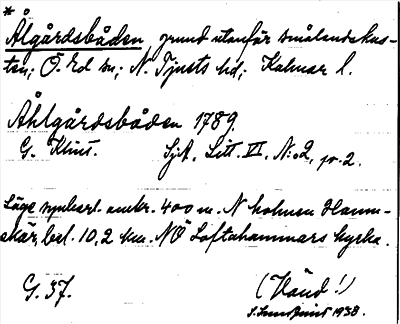 *
Ålgårdsbåden, grund utanför smålandskus-
ten; Ö. Ed sn; N. Tjusts hd; Kalmar l.
Åhlgårdsbåden 1789.
G. Klint. SjA. Litt. VI. N:o 2, pr. 2.
Läge sjökart. omkr. 400 m. N holmen Hamn-
skär, bel. 10,2 km. NÖ Loftahammars kyrka.
G. 37. (Händ!)
S. Lundquist 1938.